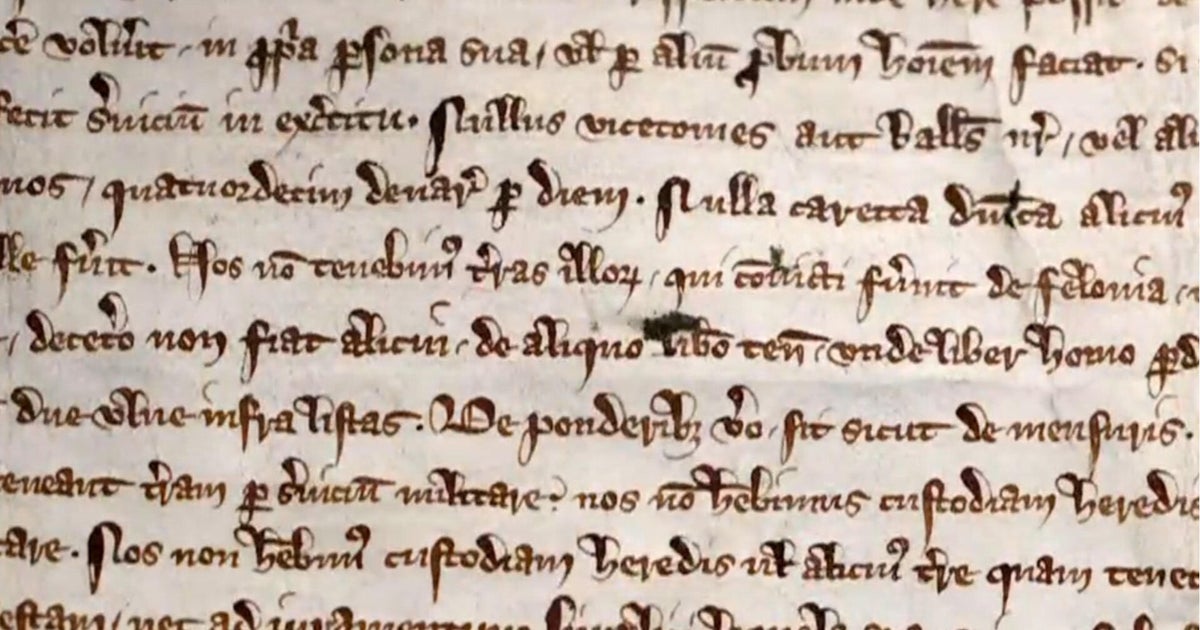 cē volūit, in ꝓpͥa ꝑsona sua, vł ꝑ aliū ꝓbum hoīem faciat. Si
fecit sˀuiciū in exˀcitu. Nullus vicecomes aut Ballˀs nrˀ, vel ali
nos, quatuordecim denarˀ ꝑ diem. Nulla carecta dn̄ica alicuiꝰ
lle fuˀit. Nos nō tenebimꝰ tˀras illoꝝ, qui cōuicti fuˀint de felonia,
, deceteˀo non fiat alicui, de aliquo libˀo ten̄, vnde liber homo ꝑd
due vlne infra listas. De ponderibꝫ vˀo, sit sicut de mensuris.
teneant tˀram ꝑ sˀuiciū militare: nos nō hēbimus custodiam heredis
tare. Nos non hēbimꝰ custodiam heredis vł alicuiꝰ tˀre quam tenet